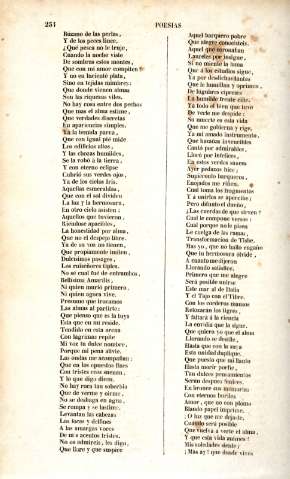 254
POESIAS
Bánano de las perlas,
Y de los peces lince.
¿Qué pesca no le truje,
Cuando la noche viste
De sombras estos montes,
Que con mi amor compiten?
Y no en luciente plata,
Sino en tejidas mimbres:
Que donde vienen almas
Son las riquezas viles.
No hay cosa entre dos pechos
Que mas el alma estime,
Que verdades discretas
En apariencias simples.
Ya la temida parca,
Que con igual pié mide
Los edificios altos,
Y las chozas humildes,
Se la robó á la tierra;
Y con eterno eclipse
Cubrió sus verdes ojos,
Ya de los cielos iris.
Aquellas esmeraldas,
Que con el sol dividen
La luz y la hermosura,
En otro cielo asisten:
Aquellos que tuvieron,
Riéndose apacibles,
La honestidad por alma,
Que no el despejo libre.
Ya de su voz no tienen,
Que propiamente imiten,
Dulcísimos pasages,
Los ruiseñores tiples.
No sé cual fué de entrambos,
Bellísima Amarilis,
Ni quien murió primero,
Ni quien agora vive.
Presumo que trocamos
Las almas al partirte:
Que pienso que es la tuya
Esta que en mí reside.
Tendido en esta arena
Con lágrimas repite
Mi voz tu dulce nombre,
Porque mi pena alivie.
Las ondas me acompañan:
Que en los opuestos fines
Con tristes ecos suenan,
Y lo que digo dicen.
No hay roca tan soberbia
Que de verme y oirme
No se deshaga en agua,
Se rompa y se lastime.
Levantan las cabezas
Las focas y delfines
A las amargas voces
De mis acentos tristes.
No os admireis, les digo,
Que llore y que suspire
Aquel barquero pobre
Que alegre conocisteis.
Aquel que coronaban
Laureles por insigne,
Si no miente la fama
Que á los estudios sigue,
Ya por desdichas tantas
Que le humillan y oprimen,
De lúgubres cipreses
La humilde frente ciñe.
Ya todo el bien que tuve
De verle me despide:
Su muerte es esta vida
Que me gobierna y rige.
Ya mi amado instrumento,
Que hazañas invencibles
Cantó por admirables,
Lloró por infelices,
En estos verdes sauces
Ayer pedazos hice;
Supiéronlo barqueros,
Enojados me riñen.
Cual toma los fragmentos
Y á unirlos se apercibe;
Pero difunto el dueño,
¿Las cuerdas de qué sirven?
Cual le compone versos:
Cual porque no le pisen
Le cuelga de las ramas,
Transformacion de Tisbe.
Mas yo, que no hallo engaño
Que tu hermosura olvide,
A cuanto me dijeron
Llorando satisfice.
Primero que me alegre
Será posible unirse
Este mar al de Italia
Y el Tajo con el Tibre.
Con los corderos mansos
Retozarán los tigres,
Y faltará á la ciencia
La envidia que la sigue.
Que quiero yo que el alma
Llorando se destile,
Hasta que con la suya
Esta unidad duplique.
Que puesto que mi llanto
Hasta morir porfie,
Tan dulces pensamientos
Serán despues fenices.
En bronce sus memorias
Con eternos buriles
Amor, que no con plomo
Blando papel imprime.
¡O luz que me dejaste,
Cuándo será posible
Que vuelva á verte el alma,
Y que esta vida animes!
Mis soledades siente;
¡Mas ay! que donde vives